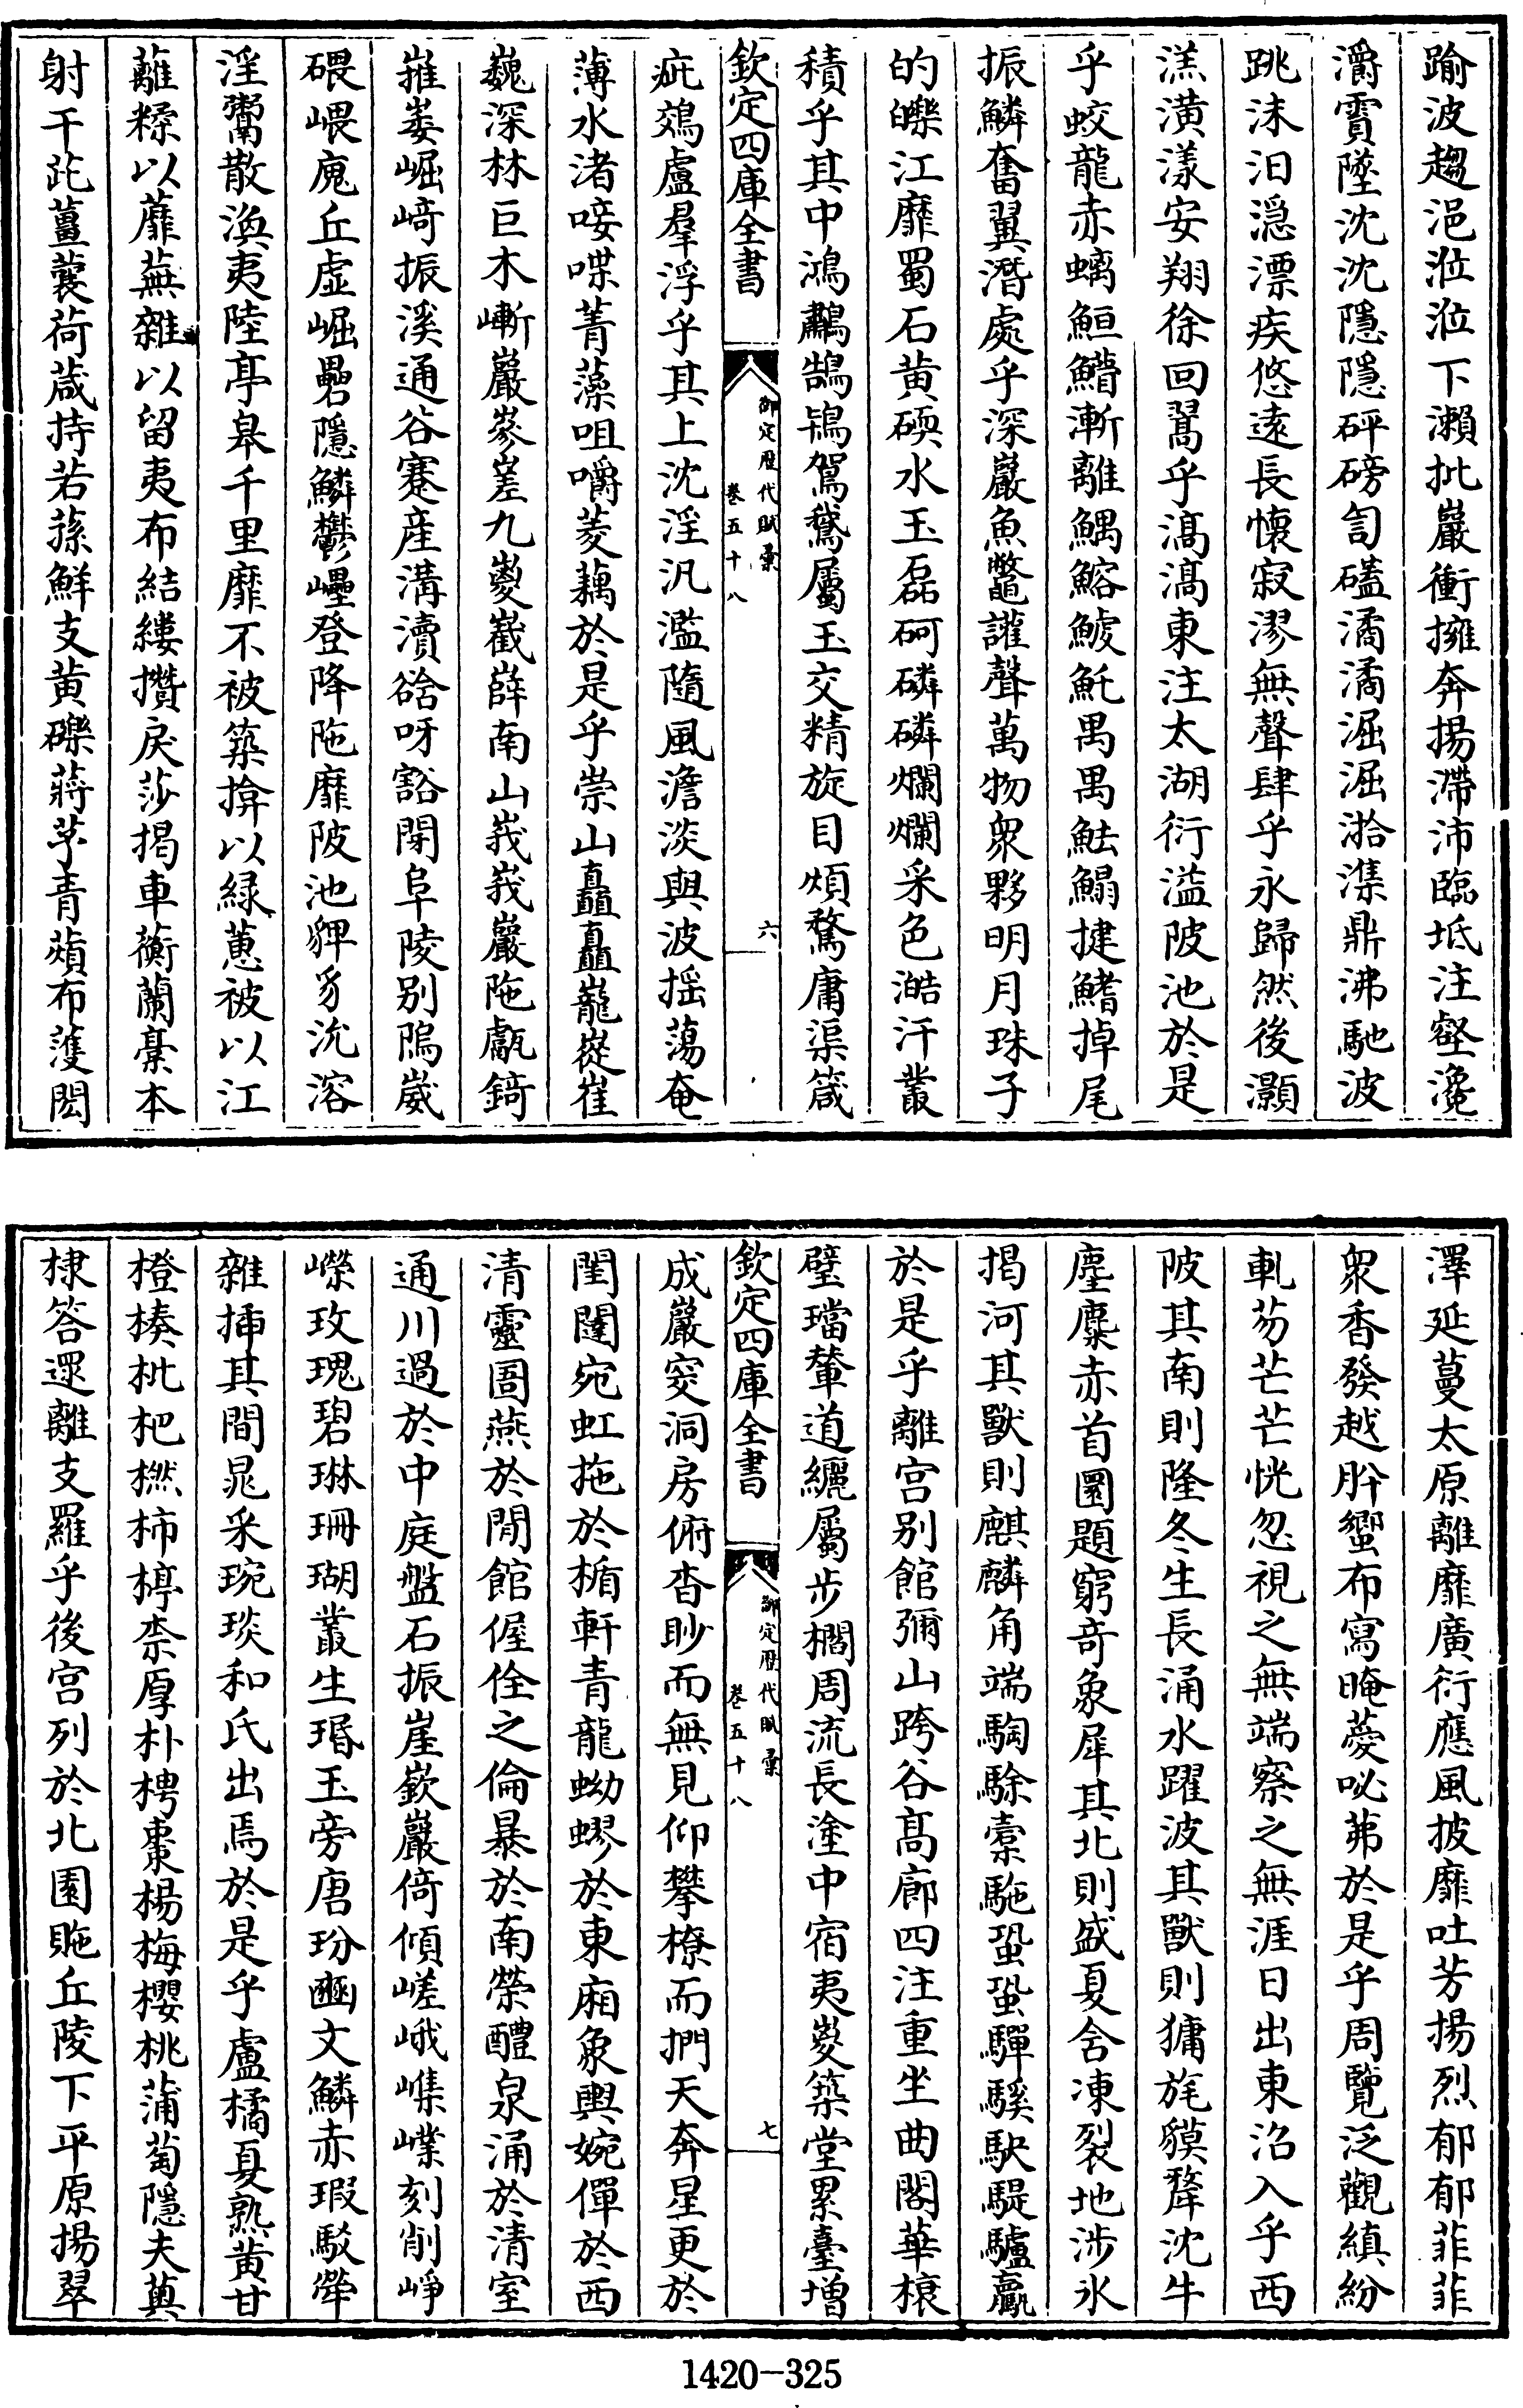 踰波趨浥涖涖下瀨批巖衝擁奔揚滯沛臨坻注壑瀺
灂霣墜沈沈隱隱砰磅訇礚潏潏淈淈湁潗鼎沸馳波
跳沫汨㶏漂疾悠遠長懷寂漻無聲肆乎永歸然後灝
溔潢漾安翔徐回翯乎滈滈東注太湖衍溢陂池於是
乎蛟龍赤螭䱭䲛漸離鰅鰫鰬魠禺禺魼鰨揵鰭掉尾
振鱗奮翼潛處乎深巖魚鼈讙聲萬物衆夥明月珠子
的皪江靡蜀石黄碝水玉磊砢磷磷爛爛采色澔汗叢
積乎其中鴻鷫鵠鴇鴐鵝屬玉交精旋目煩鶩庸渠箴
欽定四庫全書
御定歷代賦彙
卷五十八
六
疵鵁盧羣浮乎其上沈淫汎濫隨風澹淡與波揺蕩奄
薄水渚唼喋菁藻咀嚼菱藕於是乎崇山矗矗巃嵸崔
巍深林巨木嶄巖㟥嵳九嵏嶻嶭南山峩峩巖陁甗錡
嶊崣崛崎振溪通谷蹇産溝瀆谽呀豁閕阜陵别隝崴
磈㟪廆丘虚崛礨隱鱗鬱㠥登降陁靡陂池貏豸沇溶
淫鬻散渙夷陸亭皋千里靡不被築揜以緑蕙被以江
蘺糅以蘼蕪雜以留夷布結縷攢戾莎揭車蘅蘭槀本
射干茈薑蘘荷葴持若蓀鮮支黄礫蔣芧青薠布濩閎
澤延蔓太原離靡廣衍應風披靡吐芳揚烈郁郁菲菲
衆香發越肸蠁布寫晻薆咇茀於是乎周覽泛觀縝紛
軋芴芒芒恍忽視之無端察之無涯日出東沼入乎西
陂其南則隆冬生長涌水躍波其獸則㺎旄貘犛沈牛
麈麋赤首圜題窮奇象犀其北則盛夏含凍裂地涉氷
揭河其獸則麒麟角端騊駼槖駞蛩蛩驒騱駃騠驢驘
於是乎離宫别館彌山跨谷髙廊四注重坐曲閣華榱
璧璫輦道纚屬步櫩周流長途中宿夷嵏築堂累臺增
欽定四庫全書
御定歷代賦彙
卷五十八
七
成巖窔洞房俯杳眇而無見仰攀橑而捫天奔星更於
閨闥宛虹拖於楯軒青龍蚴蟉於東廂象輿婉僤於西
清靈圄燕於閒館偓佺之倫暴於南榮醴泉涌於清室
通川過於中庭盤石振崖嶔巖倚傾嵯峨㠎嶫刻削崢
嶸玫瑰碧琳珊瑚叢生㻉玉旁唐玢豳文鱗赤瑕駁犖
雜揷其間晁采琬琰和氏出焉於是乎盧橘夏熟黄甘
橙楱枇杷橪柿楟柰厚朴梬棗楊梅櫻桃蒲萄隱夫薁
棣答遝離支羅乎後宫列於北園貤丘陵下平原揚翠
1420-325